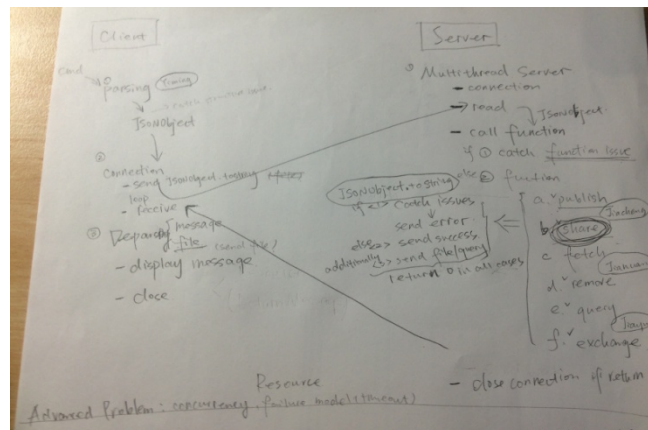 Client
cmd
parsing
JSONObject
② Connection
- send JSONObject.toString
loop
- receive
③ Response { message
file (send file)
- display message
- close
Server
① Multithread Server
- connection
- read
JSONObject
- call function
if ① catch function issue
else ② function
JSONObject.toString
if => catch issues
send error
else => send success
additionally => send file/query
return 0 in all cases
a. publish
b. share
c fetch
d. remove
e. query
f. exchange
- close connection if return
Resource
Advanced Problem: concurrency, failure model (timeout)